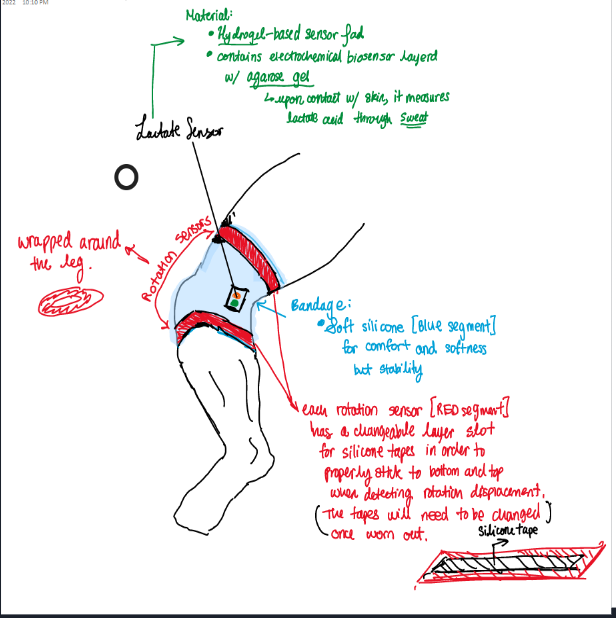 2022 10:10 PM
Material:
• Hydrogel-based sensor pad
• contains electrochemical biosensor layerd
w/ agarose gel
↳upon contact w/ skin, it measures
lactate acid through sweat
Lactate Sensor
wrapped around
the leg.
Rotation sensors
Bandage:
• Soft silicone [Blue segment]
for comfort and softness
but stability
each rotation sensor [RED segment]
has a changeable layer slot
for silicone tapes in order to
properly stick to bottom and top
when detecting rotation displacement.
(The tapes will need to be changed)
once worn out.
silicone tape